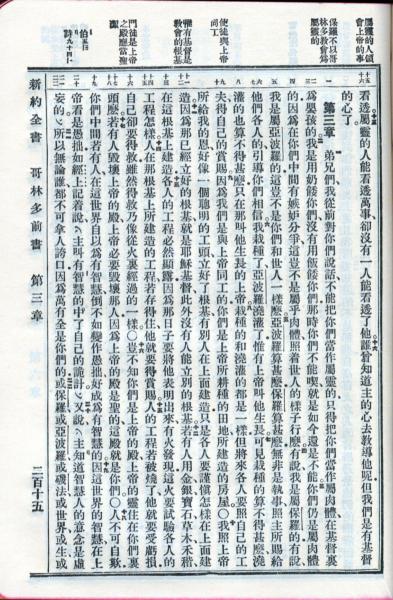 屬靈的人領
會上帝的事
保羅不以哥
林多教會爲
屬靈的
使徒與上帝
同工
惟有基督是
教會的根基
門徒是上帝
之殿應當聖
看透屬靈的人能看透萬事卻沒有一人能看透了他誰曾知道主的心去教導他呢但我們是有基督
的心了
第三章 弟兄們我從前對你們說話不能把你們當作屬靈的只得把你們當作屬肉體在基督裏
爲嬰孩的我是用奶餧你們沒有用飯餧你們那時你們不能喫就是如今還是不能你們仍是屬肉體
的因爲在你們中間有嫉妒分爭這豈不是屬乎肉體照着世人的樣子行麼有說我是屬保羅的有說
我是屬亞波羅的這豈不是你們和世人一樣麼亞波羅算甚麼保羅算甚麼無非是執事照主所賜給
他們各人的引導你們相信我栽種了亞波羅澆灌了惟有上帝叫他生長可見栽種的算不得甚麼澆
灌的也算不得甚麼只在那叫他生長的上帝栽種的和澆灌的都是一樣但將來各人要照自己的工
夫得自己的賞賜因爲我們是與上帝同工的你們是上帝所耕種的田地所建造的房屋○我照上帝
所給我的恩好像一個聰明的工頭立好了根基有別人在上面建造只是各人要謹慎怎樣在上面建
造因爲那已經立好的根基就是耶穌基督此外沒有人能立別的根基若有人用金銀寶石草木禾稭
在這根基上建造各人的工程必然顯露因爲那日子要將他表明出來有火發現這火要試驗各人的
工程怎樣人在那根基上所建造的工程若存得住他就要得賞賜人的工程若被燒了他就要受虧損
自己要得救雖然得救乃像從火裏經過的一樣○豈不知你們是上帝的殿上帝的靈住在你們裏
頭麼若有人毀壞上帝的殿上帝必要毀壞那人因爲上帝的殿是聖的這殿就是你們○人不可自欺
你們中間若有人在這世界自以爲有智慧倒不如變作愚拙好成爲有的智慧的因這世界的智慧在上
帝看是愚拙如經上記着說主叫有智慧的中了自己的詭計又說主知道智慧人的意念是虛
妄的所以無論誰都不可拿人誇口因爲萬有全是你們的或保羅或亞波羅或磯法或世界或生或
新約全書 哥林多前書 第三章 二百十五